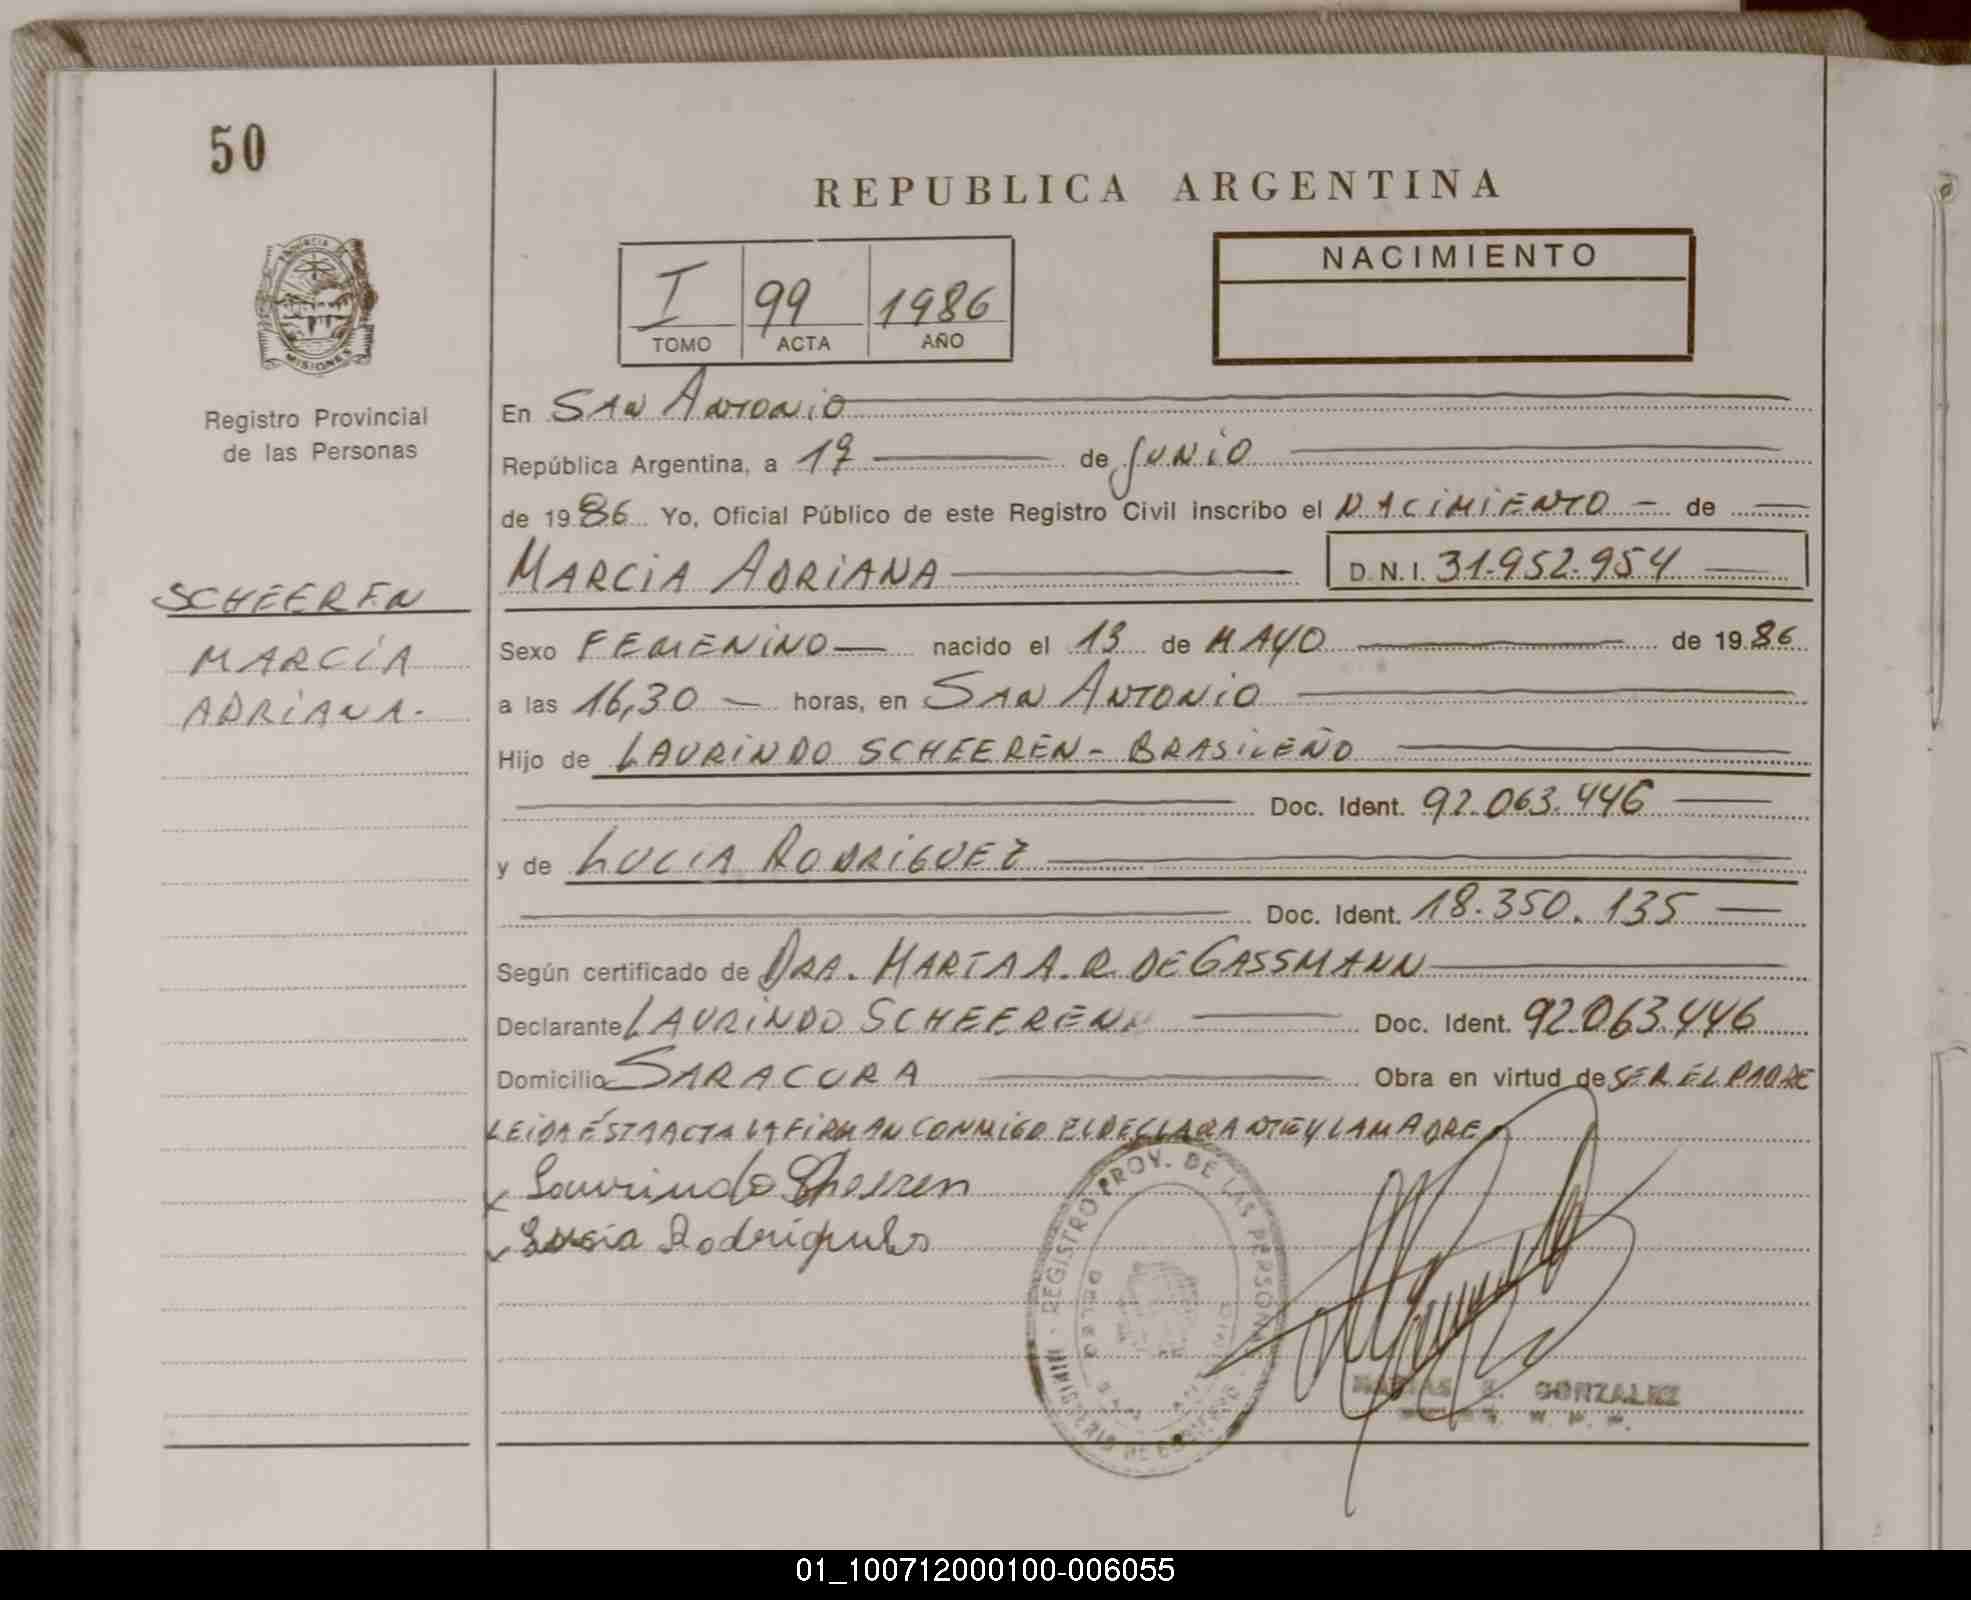 50
REPUBLICA ARGENTINA
NACIMIENTO
I 99 1986
TOMO ACTA AÑO
MISIONES
Registro Provincial
de las Personas
SCHEEREN
MARCÍA
ADRIANA.
En SAN ANTONIO
República Argentina, a 17 de JUNIO
de 1986 Yo, Oficial Público de este Registro Civil inscribo el NACIMIENTO - de
MARCIA ADRIANA D.N.I. 31.952.954
Sexo FEMENINO nacido el 13 de MAYO de 1986
a las 16,30 horas, en SAN ANTONIO
Hijo de LAURINDO SCHEEREN - BRASILEÑO
Doc. Ident. 92.063.446
y de LUCIA RODRIGUEZ
Doc. Ident. 18.350.135
Según certificado de DRA. MARTA A. R. DE GASSMANN
Declarante LAURINDO SCHEEREN Doc. Ident. 92.063.446
Domicilio SARACURA Obra en virtud de SER EL PADRE
LEIDA ÉSTA ACTA LA FIRMAN CONMIGO EL DECLARANTE Y LA MADRE
Laurindo Sheeren
Lucia Rodrigues
REGISTRO PROV. DE LAS PERSONAS
MINISTERIO DE GOBIERNO
GONZALEZ
01_100712000100-006055